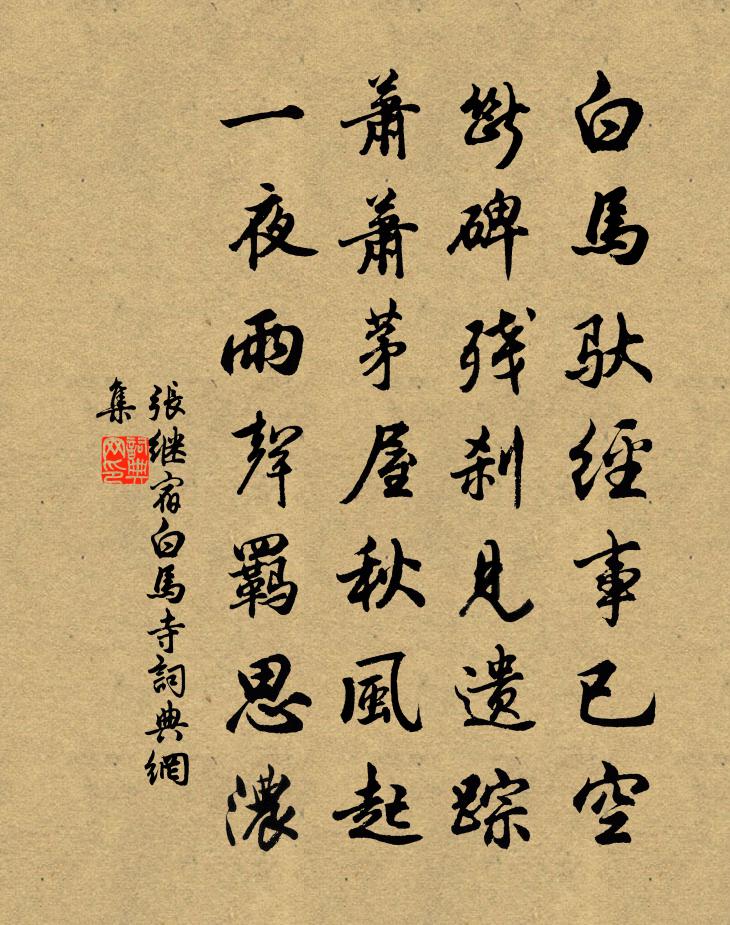 白馬馱經事已空
斷碑残刹見遺踪
蕭蕭茅屋秋風起
一夜雨聲羈思濃
張继宿白馬寺詞典網
集
詞典网印